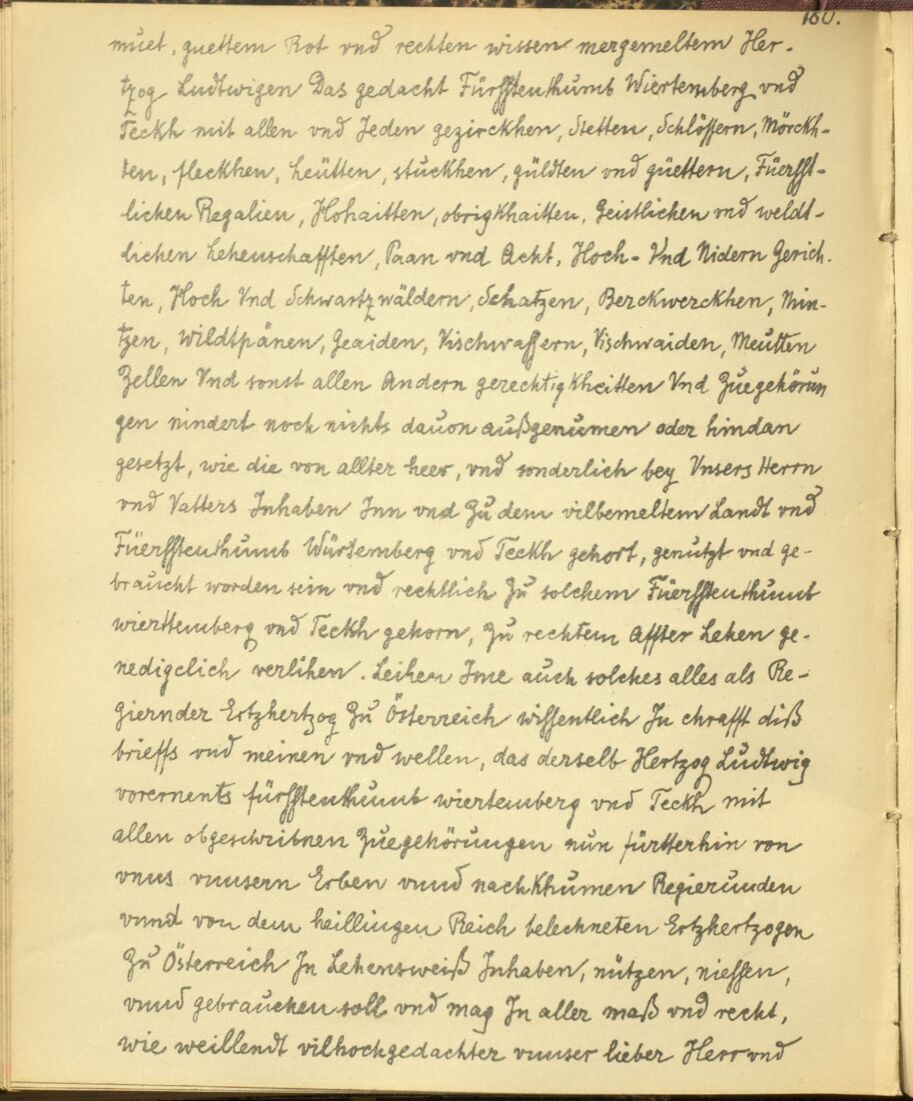 180.
muet, guettem Rot vnd rechten wissen mergemeltem Her-
tzog Ludtwigen Das gedacht Fürsstenthumb Wiertemberg vnd
Teckh mit allen vnd Jeden gezirckhen, Stetten, Schlössern, Mörckh-
ten, fleckhen, heütten, stuckhen, güldten vnd güettern, Füersst-
lichen Regalien, Hohaitten, obrigkhaitten, Geistlichen vnd weldt-
lichen Lehenschafften, Paan vnd Acht, Hoch- Vnd Nidern Gerich-
ten, Hoch Vnd Schwartzwäldern, Schatzen, Berckwerckhen, Min-
tzen, Wildtpänen, Geaiden, Vischwassern, Vischwaiden, Meutten
Zellen Vnd sonst allen Andern gerechtigkheitten Vnd Zuegehörun
gen nindert noch nichts dauon außgenumen oder hindan
gesetzt, wie die von allter heer, vnd sonderlich bey Vnsers Herrn
vnd Vatters Inhaben Inn vnd Zu dem vilbemeltem Landt vnd
Füersstenthumb Würtemberg vnd Teckh gehort, genutzt vnd ge-
braucht worden sein vnd rechtlich Zu solchem Füersstenthumb
wierttemberg vnd Teckh gehorn, Zu rechtem Affter Lehen ge-
nedigclich verlihen. Leihen Ime auch solches alles als Re-
giernder Ertzhertzog Zu Österreich wissentlich In chrafft diß
brieffs vnd meinen vnd wellen, das derselb Hertzog Ludtwig
vorernents fürsstenthumb wiertemberg vnd Teckh mit
allen obgeschribnen Zuegehörungen nun fürtterhin von
vnns vnnsern Erben vnnd nachkhumen Regierunden
vnnd von dem heillingen Reich belechneten Ertzhertzogen
Zu Österreich In Lehensweiß Inhaben, nützen, niessen,
vnnd gebrauchen soll vnd mag In aller maß vnd recht,
wie weillendt vilhochgedachter vnnser lieber Herr vnd